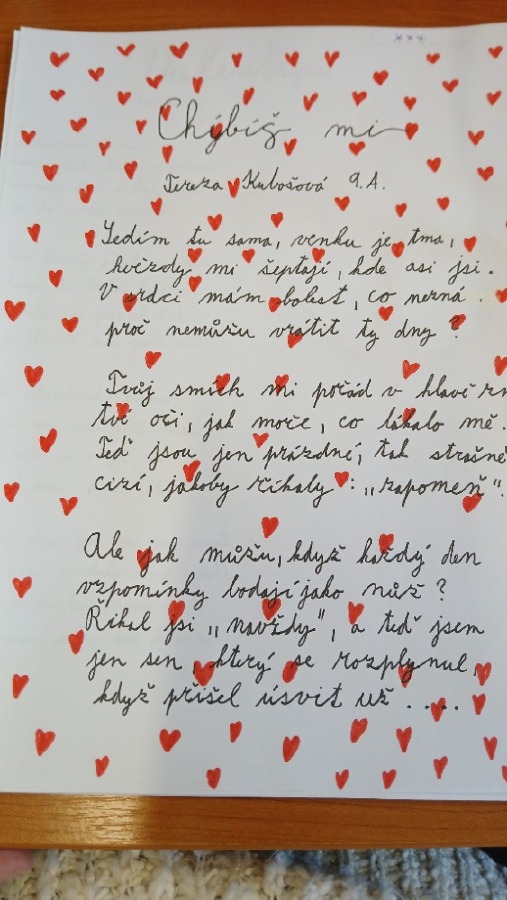 ***
Chybíš mi
Tereza Kubošová 9.A.
Sedím tu sama, venku je tma,
hvězdy mi šeptají, kde asi jsi.
V srdci mám bolest, co nezná.
proč nemůžu vrátit ty dny?
Tvůj smích mi pořád v hlavě zn
tvé oči, jak moře, co lákalo mě.
Teď jsou jen prázdné, tak strašně
cizí, jakoby říkaly: „zapomeň".
Ale jak můžu, když každý den
vzpomínky bodají jako nůž?
Říkal jsi „navždy", a teď jsem
jen sen, který se rozplynul,
když přišel úsvit už ....